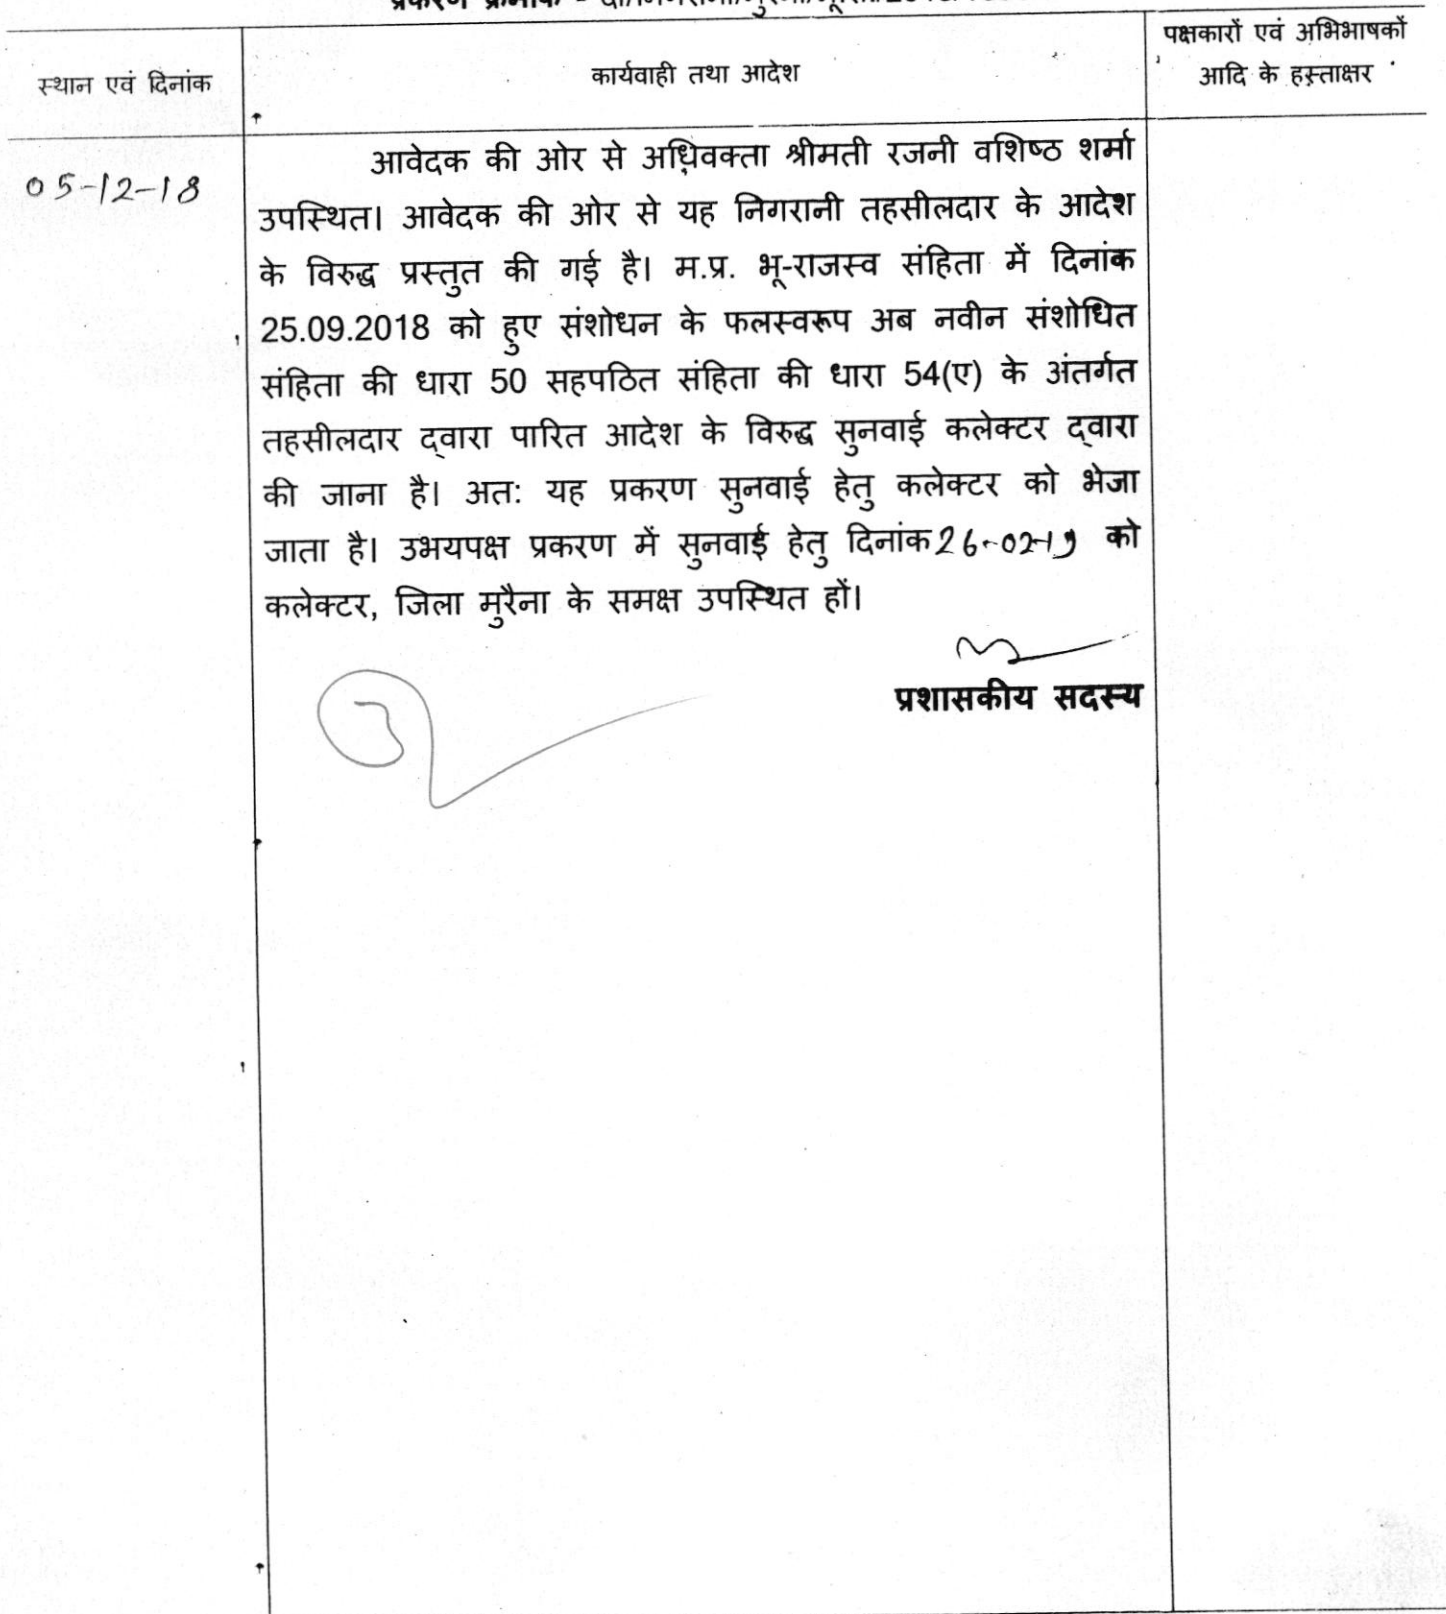 प्रकरण क्रमांक -
पक्षकारों एवं अभिभाषकों
स्थान एवं दिनांक कार्यवाही तथा आदेश आदि के हस्ताक्षर
05-12-18
आवेदक की ओर से अधिवक्ता श्रीमती रजनी वशिष्ठ शर्मा
उपस्थित। आवेदक की ओर से यह निगरानी तहसीलदार के आदेश
के विरुद्ध प्रस्तुत की गई है। म.प्र. भू-राजस्व संहिता में दिनांक
25.09.2018 को हुए संशोधन के फलस्वरूप अब नवीन संशोधित
संहिता की धारा 50 सहपठित संहिता की धारा 54(ए) के अंतर्गत
तहसीलदार द्वारा पारित आदेश के विरुद्ध सुनवाई कलेक्टर द्वारा
की जाना है। अत: यह प्रकरण सुनवाई हेतु कलेक्टर को भेजा
जाता है। उभयपक्ष प्रकरण में सुनवाई हेतु दिनांक 26-02-19 को
कलेक्टर, जिला मुरैना के समक्ष उपस्थित हों।
प्रशासकीय सदस्य